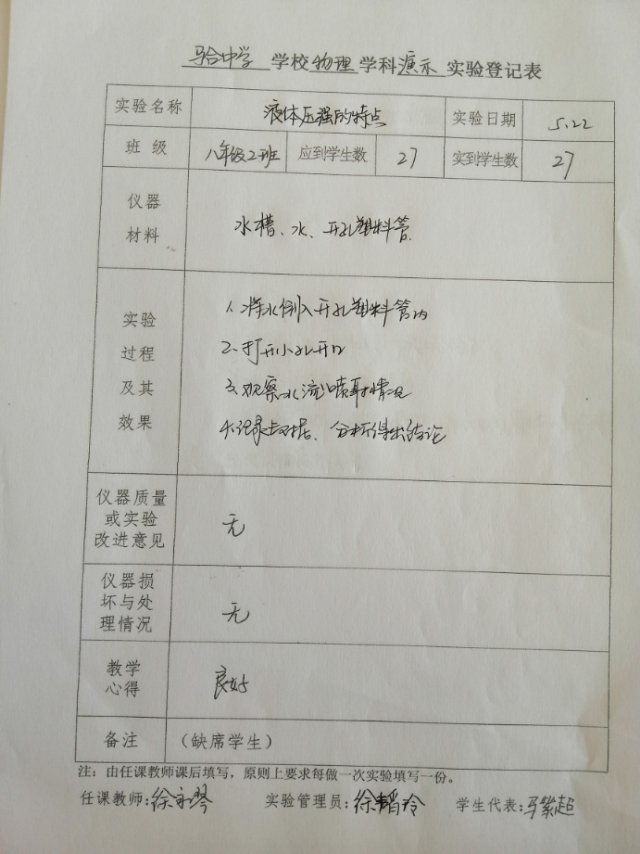 马合中学 学校 物理 学科 演示 实验登记表
实验名称 液体压强的特点 实验日期 5.22
班 级 八年级2班 应到学生数 27 实到学生数 27
仪器
材料
水槽、水、开孔塑料管.
实验
过程
及其
效果
1、将水倒入开孔塑料管内
2、打开小孔开口
3、观察水流喷射情况
4、记录数据、分析得出结论
仪器质量
或实验
改进意见
无
仪器损
坏与处
理情况
无
教学
心得
良好
备注 (缺席学生)
注：由任课教师课后填写，原则上要求每做一次实验填写一份。
任课教师: 徐 琴 实验管理员: 徐 玲 学生代表: 马紫超